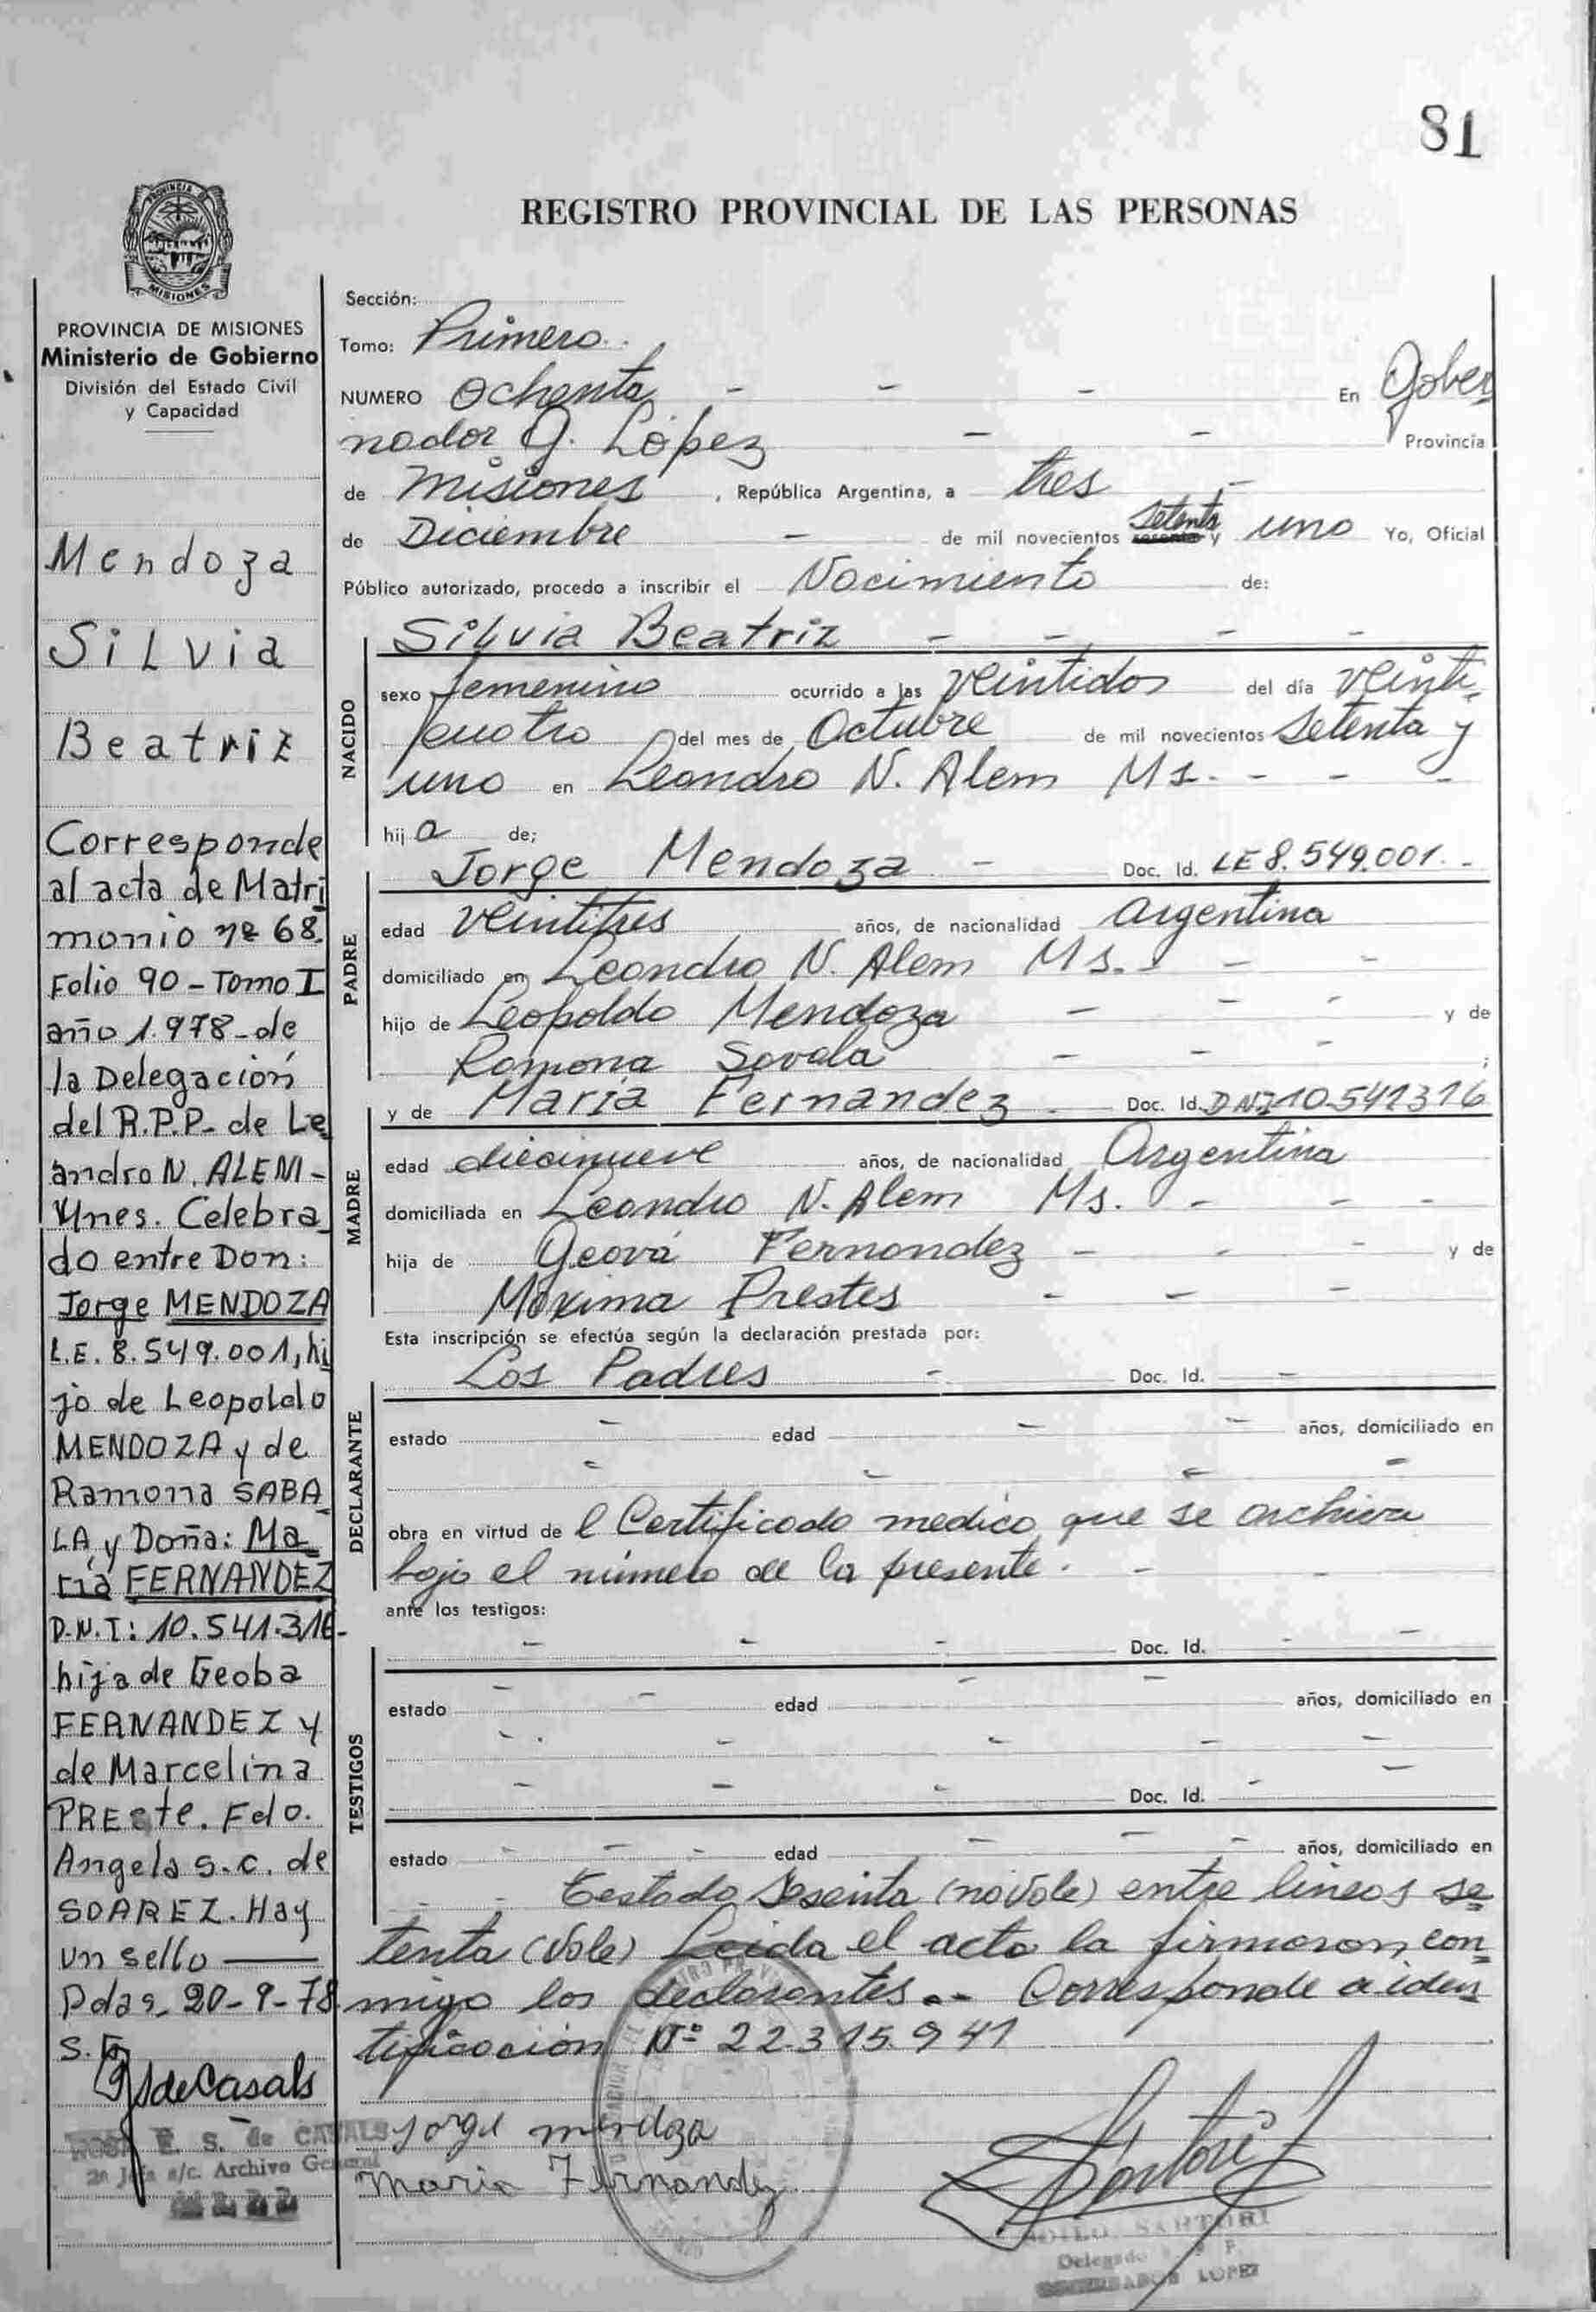 81
REGISTRO PROVINCIAL DE LAS PERSONAS
PROVINCIA DE
MISIONES
PROVINCIA DE MISIONES
Ministerio de Gobierno
División del Estado Civil
y Capacidad
Mendoza
Silvia
Beatriz
Corresponde
al acta de Matri
monio nº 68.
Folio 90 - Tomo I
año 1.978 - de
la Delegación
del R.P.P. de Le
andro N. ALEM -
Mnes. Celebra
do entre Don:
Jorge MENDOZA
L.E. 8.549.001, hi
jo de Leopoldo
MENDOZA y de
Ramona SABA
LA y Doña: Ma
ría FERNANDEZ
D.N.I: 10.541.316-
hija de Geoba
FERNANDEZ y
de Marcelina
PREste. Fdo.
Angela S.C. de
SOAREZ. Hay
un sello ——
Pdas, 20-9-78
deCasals
ROSA E. S. de CASALS
2a Jefa a/c. Archivo General
Sección:
Tomo: Primero.
NUMERO Ochenta - - - En Gober
nador J. López - - Provincia
de Misiones, República Argentina, a tres -
de Diciembre - de mil novecientos setenta sesenta y uno Yo, Oficial
Público autorizado, procedo a inscribir el Nacimiento de:
NACIDO
Silvia Beatriz - - - -
sexo femenino ocurrido a las veintidos del día veinti
cuatro del mes de Octubre de mil novecientos setenta y
uno en Leandro N. Alem Ms. - - -
hij a de;
PADRE
Jorge Mendoza - Doc. Id. LE 8.549.001. -
edad veintitres años, de nacionalidad Argentina
domiciliado en Leandro N. Alem Ms. - - -
hijo de Leopoldo Mendoza - - - y de
Ramona Savala - - - ;
MADRE
y de María Fernandez - Doc. Id. DNI 10.541316
edad diecinueve años, de nacionalidad Argentina
domiciliada en Leandro N. Alem Ms. - - -
hija de Geová Fernandez - - - y de
Máxima Prestes - - -
Esta inscripción se efectúa según la declaración prestada por:
DECLARANTE
Los Padres - Doc. Id. -
estado - edad - - años, domiciliado en
- - - -
obra en virtud de l Certificado medico que se archiva
bajo el número de la presente. - -
ante los testigos:
TESTIGOS
- - - Doc. Id. - -
estado - - edad - - años, domiciliado en
- - - - -
- - - Doc. Id. - -
estado - - - edad - - - años, domiciliado en
- - Testado Sesenta (no vale) entre lineas se
tenta (vale) Leida el acta la firmaron con
migo los declarantes.- Corresponde a iden
tificación Nº 22.315.941
Jorge mendoza
Maria Fernandez
Sartori
SARTORI
Delegado R. P. P.
GOBERNADOR LOPEZ